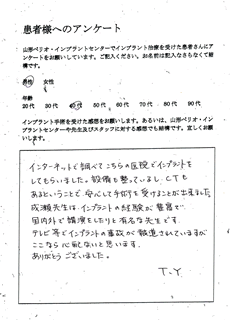 患者様へのアンケート
山形ペリオ・インプラントセンターでインプラント治療を受けた患者さんにア
ンケートをお願いしています。ご記入ください。お名前は記入なさらなくて結
構です。
男性 女性
年齢
20代 30代 40代 50代 60代 70代 80代 90代
インプラント手術を受けた感想をお願いします。あるいは、山形ペリオ・イン
プラントセンターや先生及びスタッフに対する感想でも結構です。宜しくお願
いします。
インターネットで調べてこちらの医院でインプラントを
してもらいました。設備も整っているし、CTも
あるということで、安心して手術を受けることが出来ました。
成瀬先生は、インプラントの経験が豊富で
国内外で講演をしたりと有名な先生です。
テレビ等でインプラントの事故が報道されていますが
ここなら心配ないと思います。
ありがとうございました。
T.Y